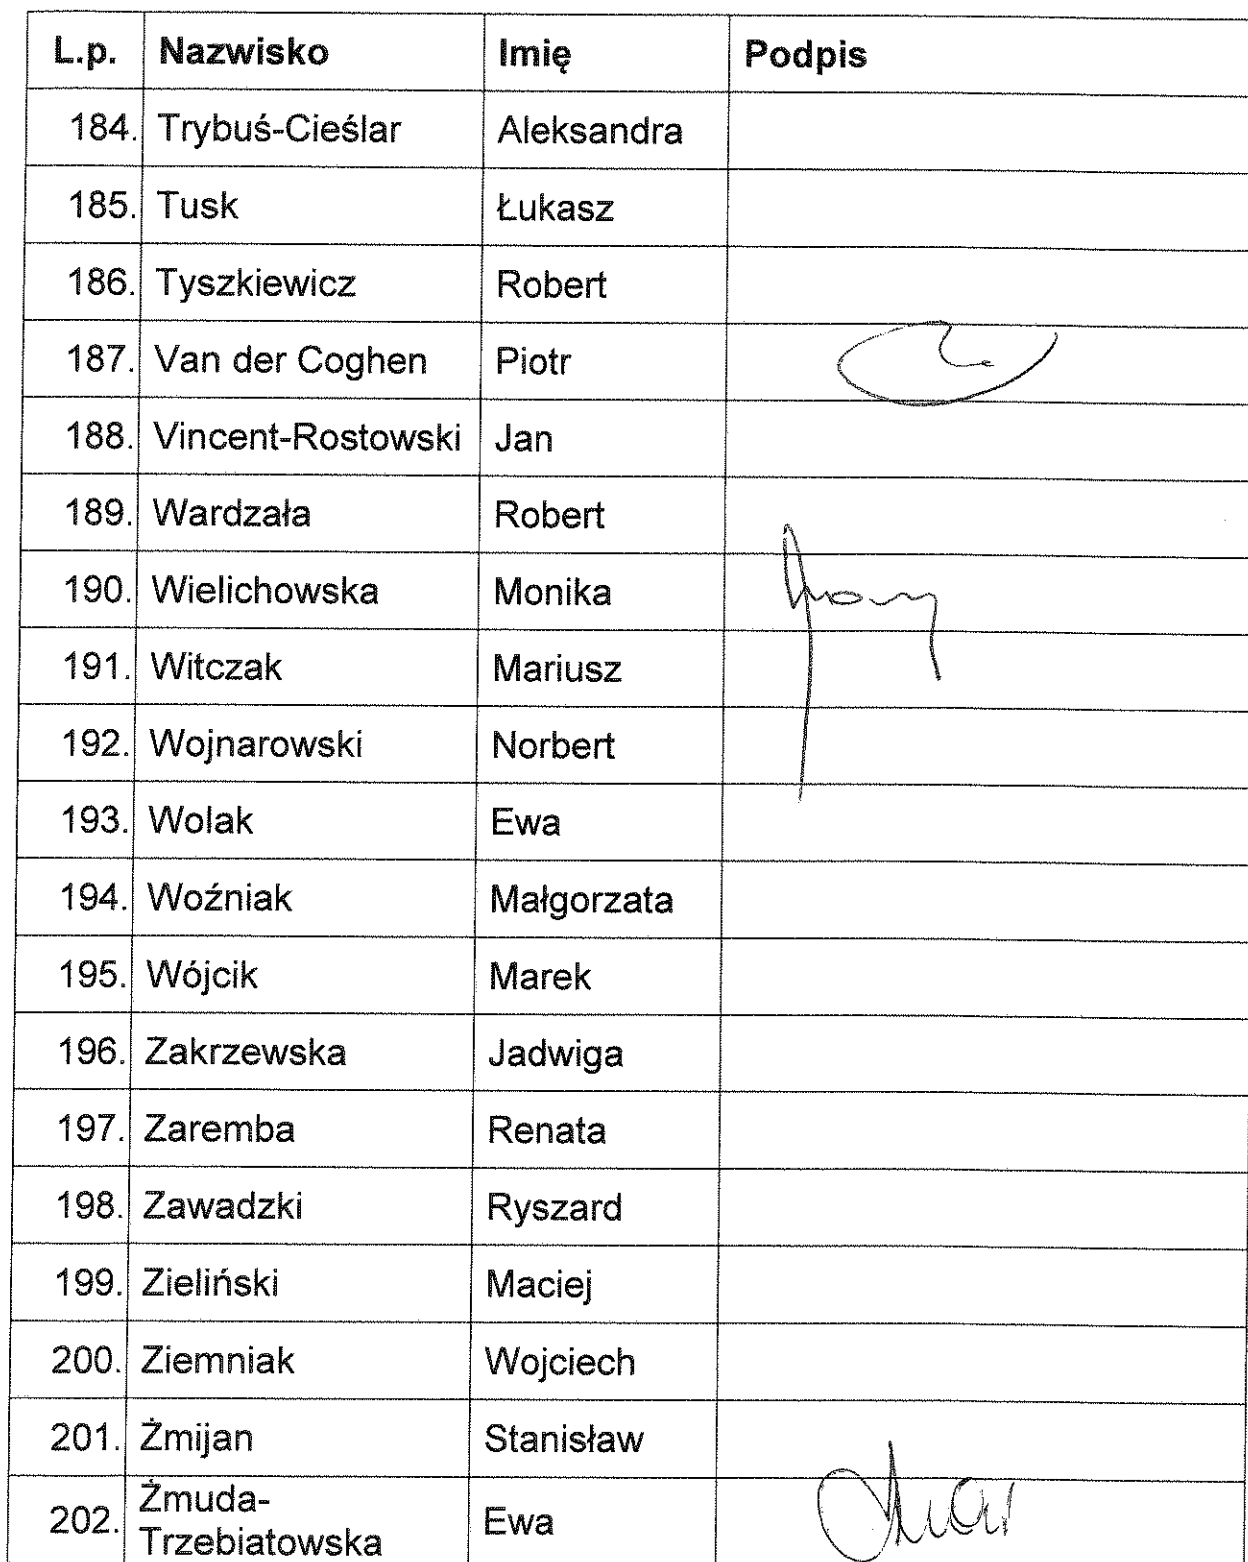 L.p. Nazwisko Imię Podpis
184. Trybuś-Cieślar Aleksandra
185. Tusk Łukasz
186. Tyszkiewicz Robert
187. Van der Coghen Piotr
188. Vincent-Rostowski Jan
189. Wardzała Robert
190. Wielichowska Monika
191. Witczak Mariusz
192. Wojnarowski Norbert
193. Wolak Ewa
194. Woźniak Małgorzata
195. Wójcik Marek
196. Zakrzewska Jadwiga
197. Zaremba Renata
198. Zawadzki Ryszard
199. Zieliński Maciej
200. Ziemniak Wojciech
201. Żmijan Stanisław
202. Żmuda-
Trzebiatowska Ewa